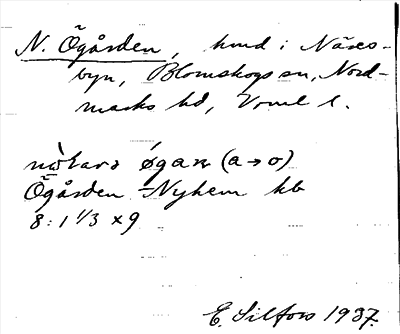 N. Ögården, hmd i Näres-
byn, Blomskogs sn, Nord-
marks hd, Vrml l.
øgaɳ (a→o)
Ögården Nyhem kb
8:1 1/3 x9
E. Silfors 1937.